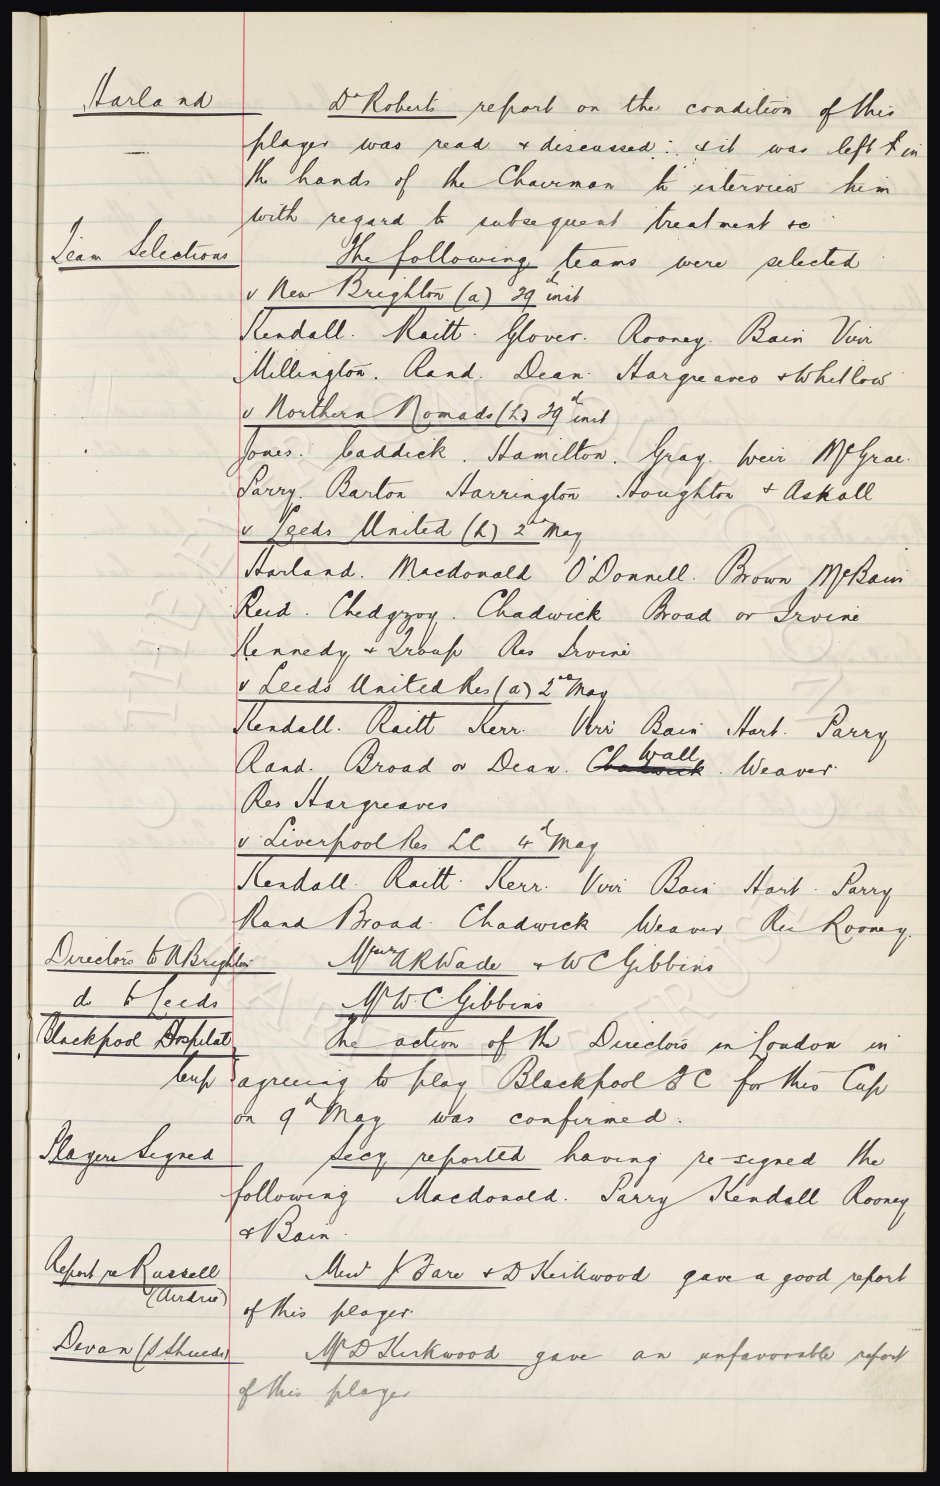 Harland Dr Roberts report on the condition of this
player was read & discussed : & it was left in
the hands of the Chairman to interview him
with regard to subsequent treatment &c
Team Selections The following teams were selected
v New Brighton (a) 29th inst
Kendall. Raitt. Glover. Rooney. Bain Virr
Millington. Rand. Dean. Hargreaves & Whitlow
v Northern Nomads (h) 29th inst
Jones. Caddick. Hamilton. Gray. Weir McGrae.
Parry. Barton Harrington Houghton & Askall
v Leeds United (h) 2nd May
Harland. Macdonald O'Donnell. Brown McBain
Reid. Chedgzoy. Chadwick Broad or Irvine
Kennedy & Troup Res Irvine
v Leeds United Res (a) 2nd May
Kendall. Raitt Kerr. Virr Bain Hart. Parry
Rand. Broad or Dean. Chadwick Wall. Weaver.
Res Hargreaves
v Liverpool Res LC 4th May
Kendall. Raitt. Kerr. Virr Bain Hart. Parry
Rand Broad. Chadwick Weaver Res Rooney.
Directors to N Brighton Messrs A R Wade & W C Gibbins
do to Leeds Mr W C Gibbins
Blackpool Hospital The action of the Directors in London in
Cup agreeing to play Blackpool F C for this Cup
on 9th May was confirmed.
Players Signed Secy reported having re-signed the
following Macdonald. Parry Kendall Rooney
& Bain.
Report re Russell Messrs J Fare & D Kirkwood gave a good report
(Airdrie) of this player.
Devan (S. Shields) Mr D Kirkwood gave an unfavorable report
of this player